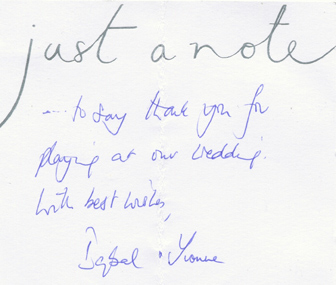 just a note
.... to say thank you for
playing at our wedding.
With best wishes,
Iqbal • Yvonne